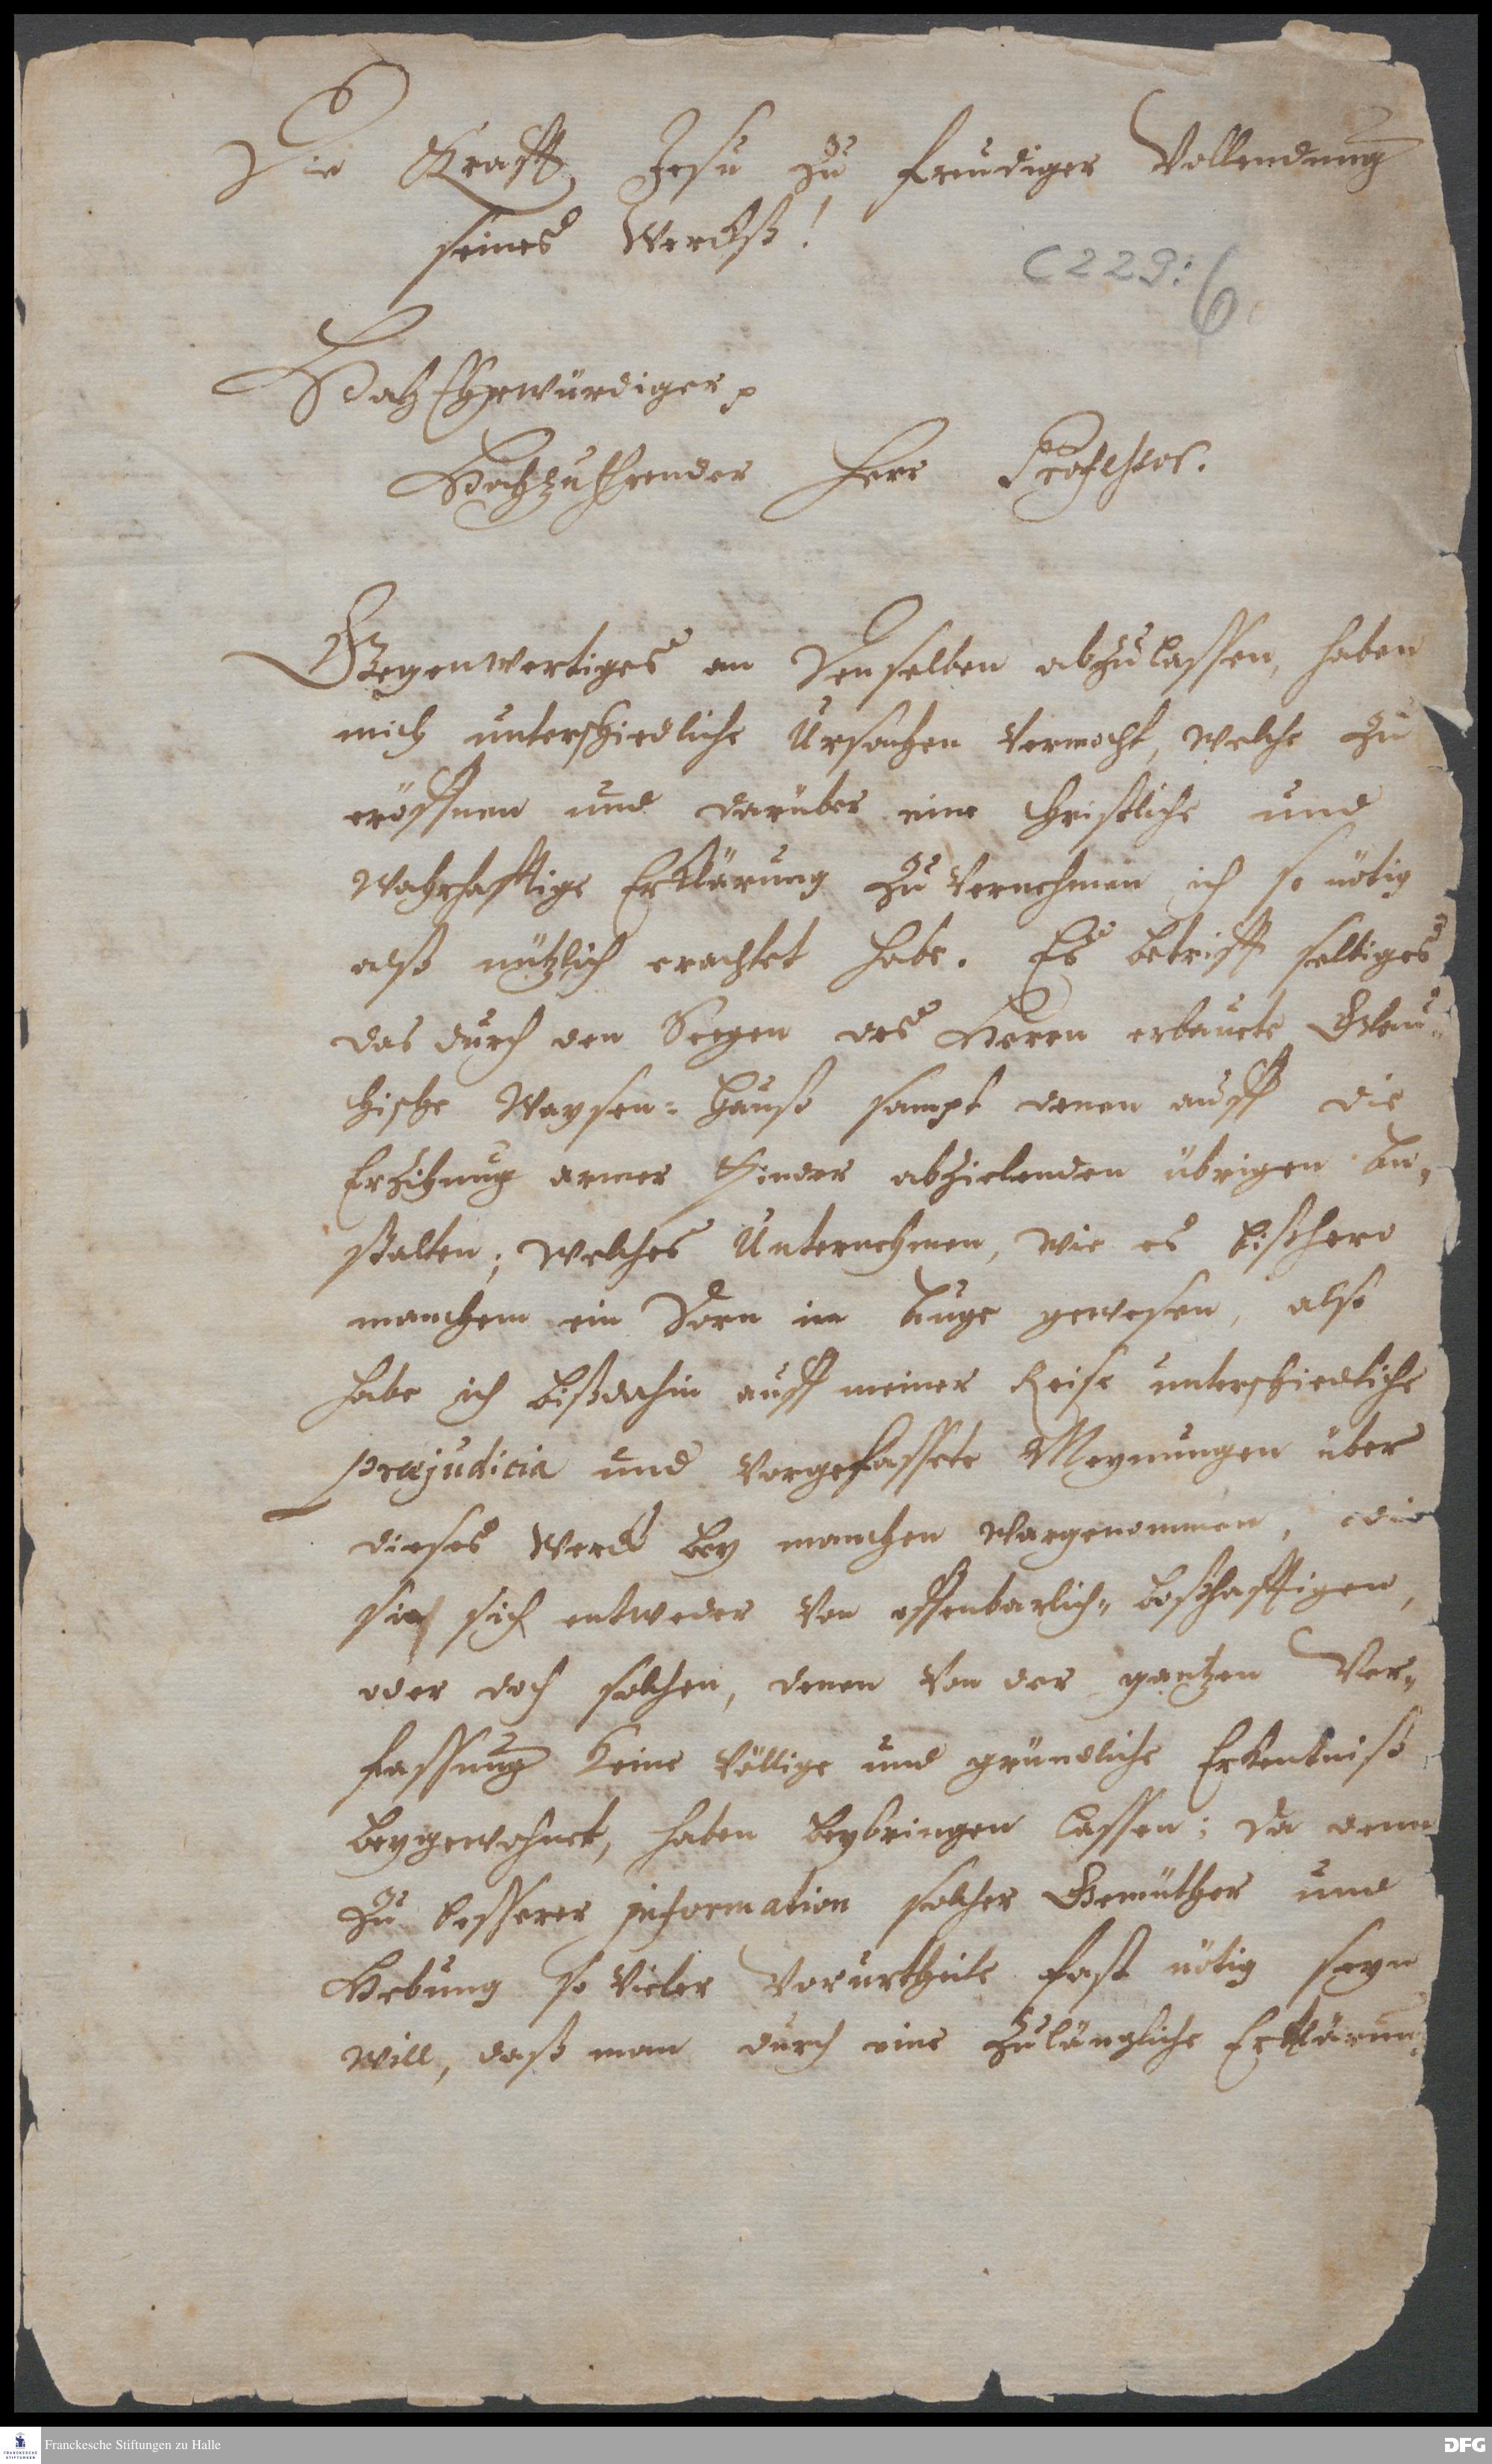 Die Krafft Jesu zu freudiger Vollendung
seines Wercks!
C 229:6
HochEhrwürdiger p
Hochzuehrender Herr Professor.
Gegenwertiges an Denselben abzulassen, haben
mich unterschiedliche Ursachen vermocht, welche zu
eröffnen und darüber eine Christliche und
wahrhafftige Erklärung zu vernehmen ich so nötig
alß nützlich erachtet habe. Es betrifft selbiges
das durch den Seegen des Herrn erbauete Glau-
chische Waysen-Hauß sampt denen auff die
Erzihung armer Kinder abzielenden übrigen An-
stalten; welches Unternehmen, wie es bißhero
manchem ein Dorn im Auge gewesen, also
habe ich bißdahin auff meiner Reise unterschiedliche
præjudicia und vorgefassete Meynungen über
dieses Werck bey manchen wargenommen, die
sie sich entweder von offenbarlich-boßhafftigen,
oder doch solchen, denen von der gantzen Ver-
fassung keine völlige und gründliche Erkentniß
beygewohnet, haben beybringen lassen; da denn
zu besserer information solcher Gemüther und
Hebung so vieler Vorurtheile fast nötig seyn
will, daß man durch eine zulängliche Erklärun
Franckesche Stiftungen zu Halle
FRANCKESCHE STIFTUNGEN
DFG